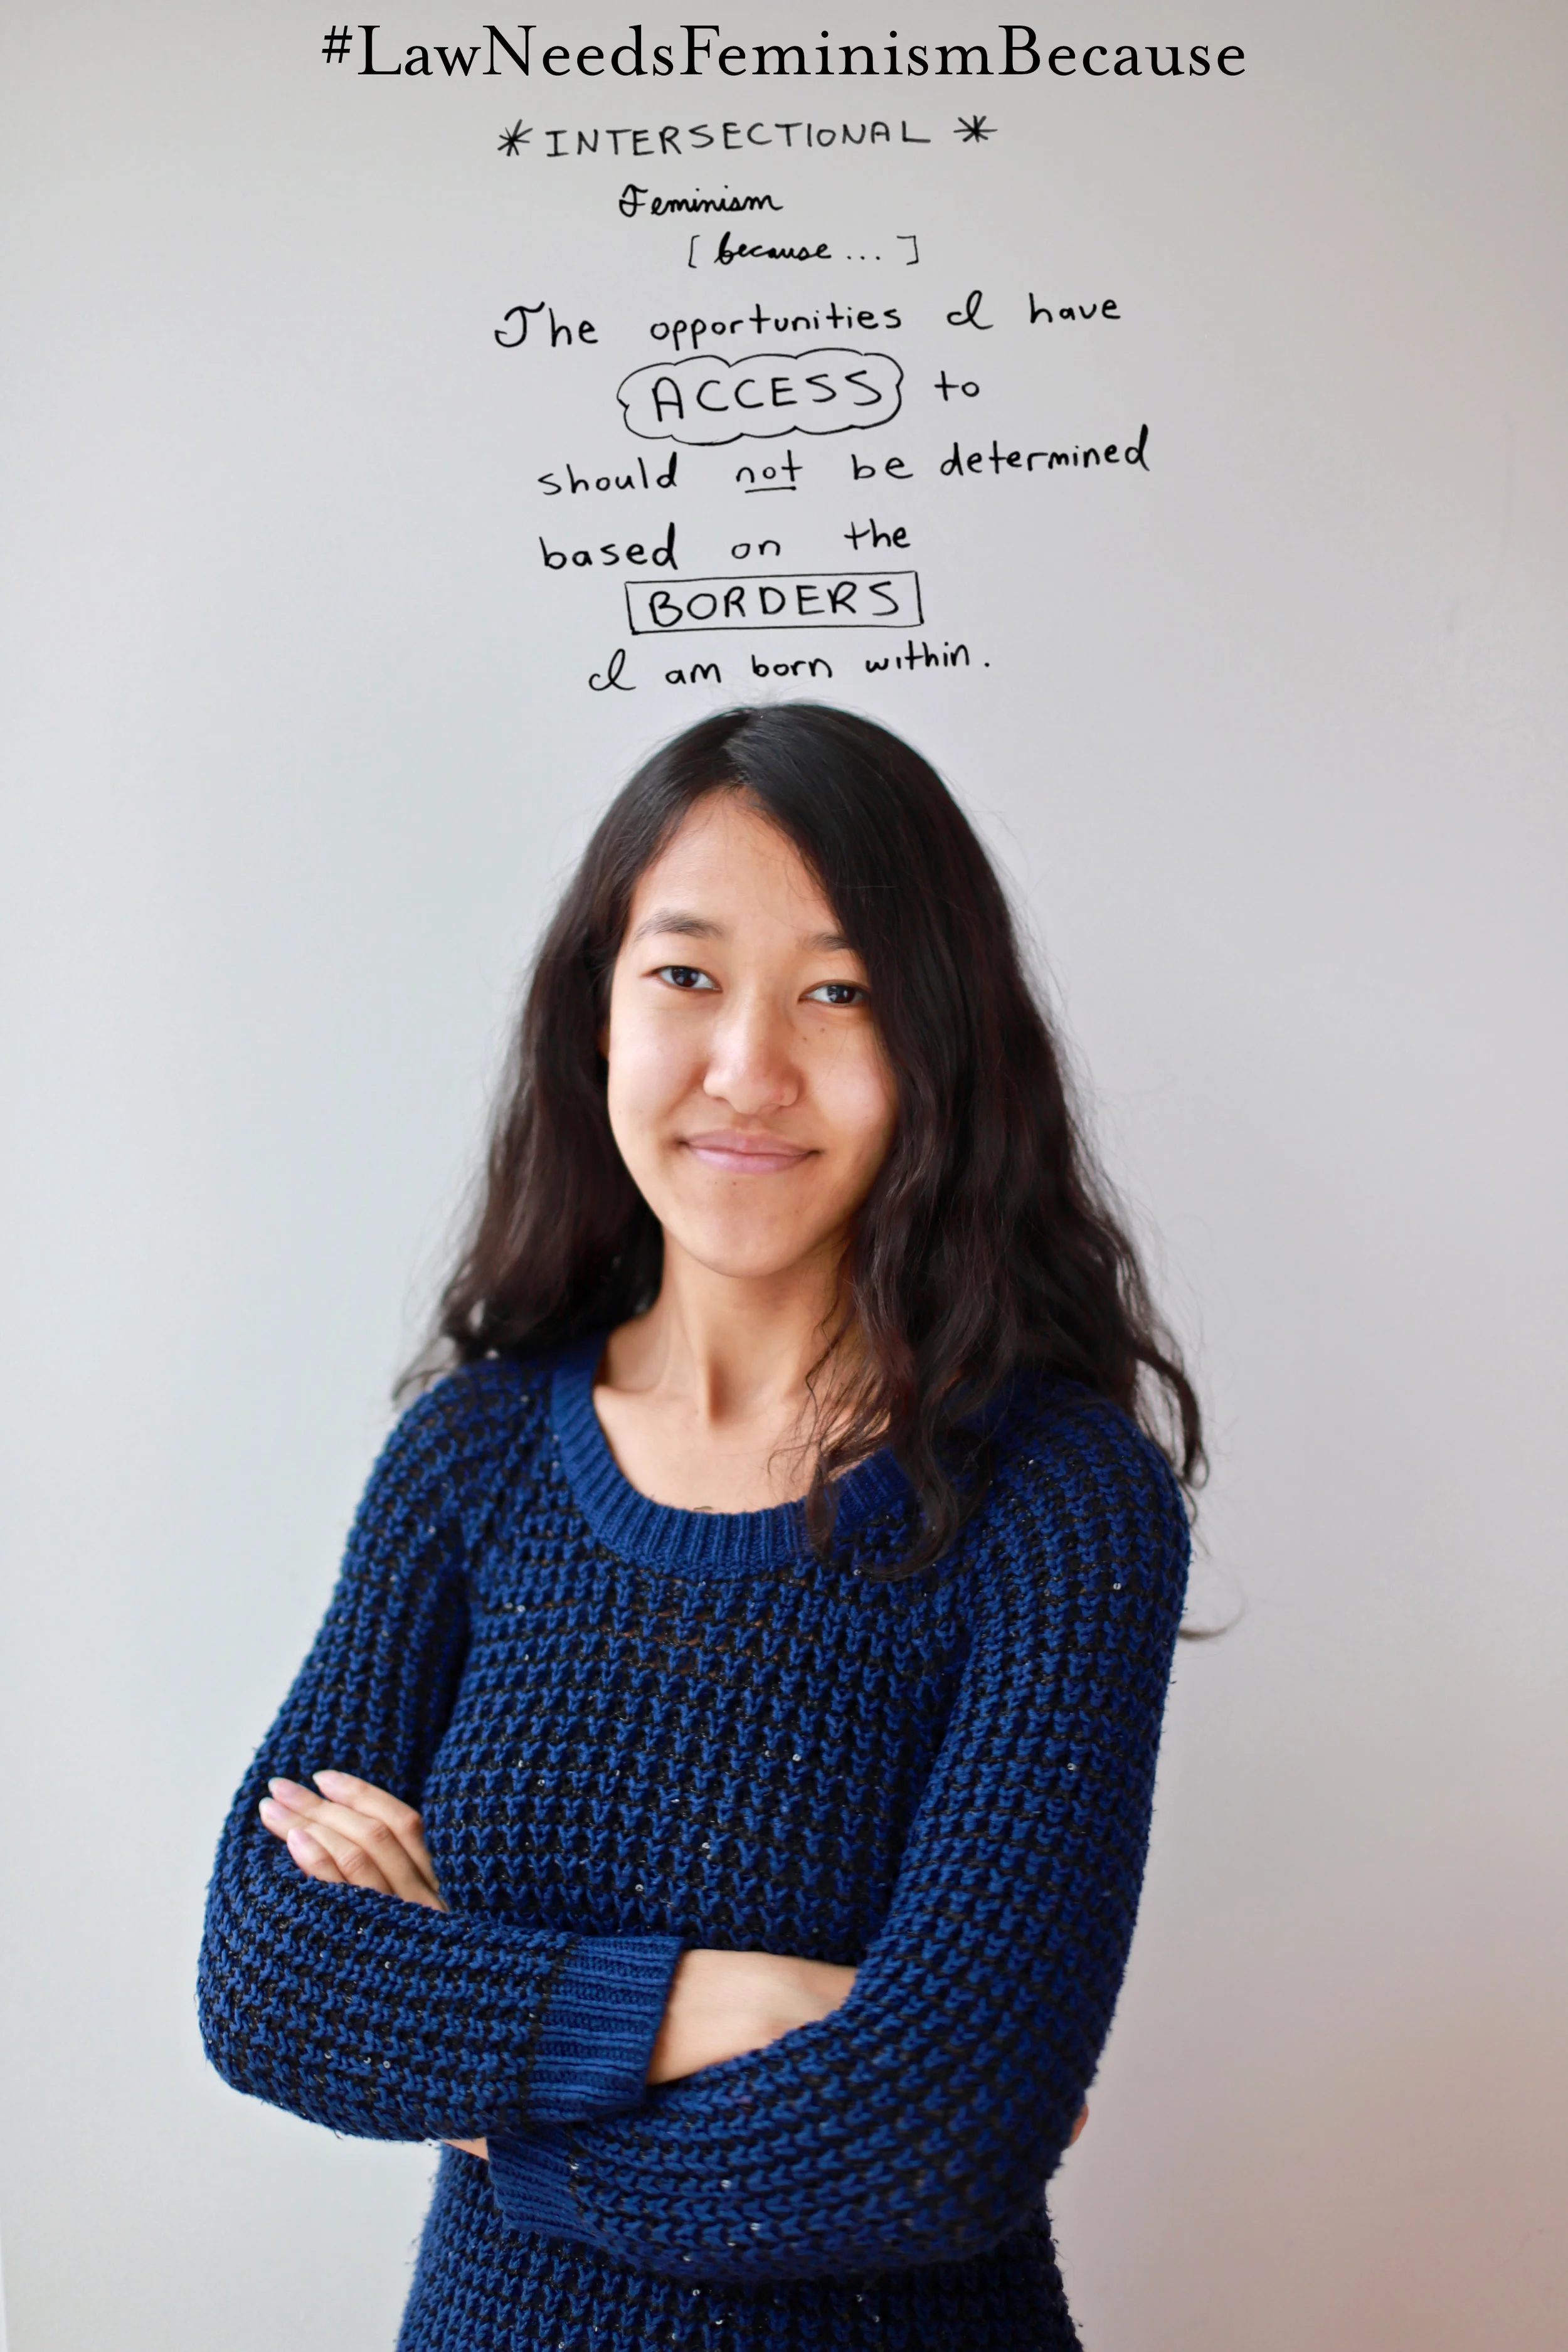 #LawNeedsFeminismBecause
* INTERSECTIONAL *
Feminism
[ because ... ]
The opportunities I have
ACCESS to
should not be determined
based on the
BORDERS
I am born within.